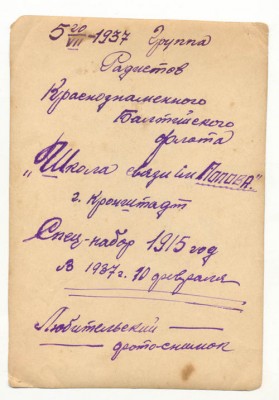 5 20/VII-1937 Группа
Радистов
Краснознаменного
Балтийского
флота
"Школа связи им ПОППЕА"
г. Кронштадт
Спец-набор 1915 год
в 1937 г. 10 февраля
Любительский
фото-снимок